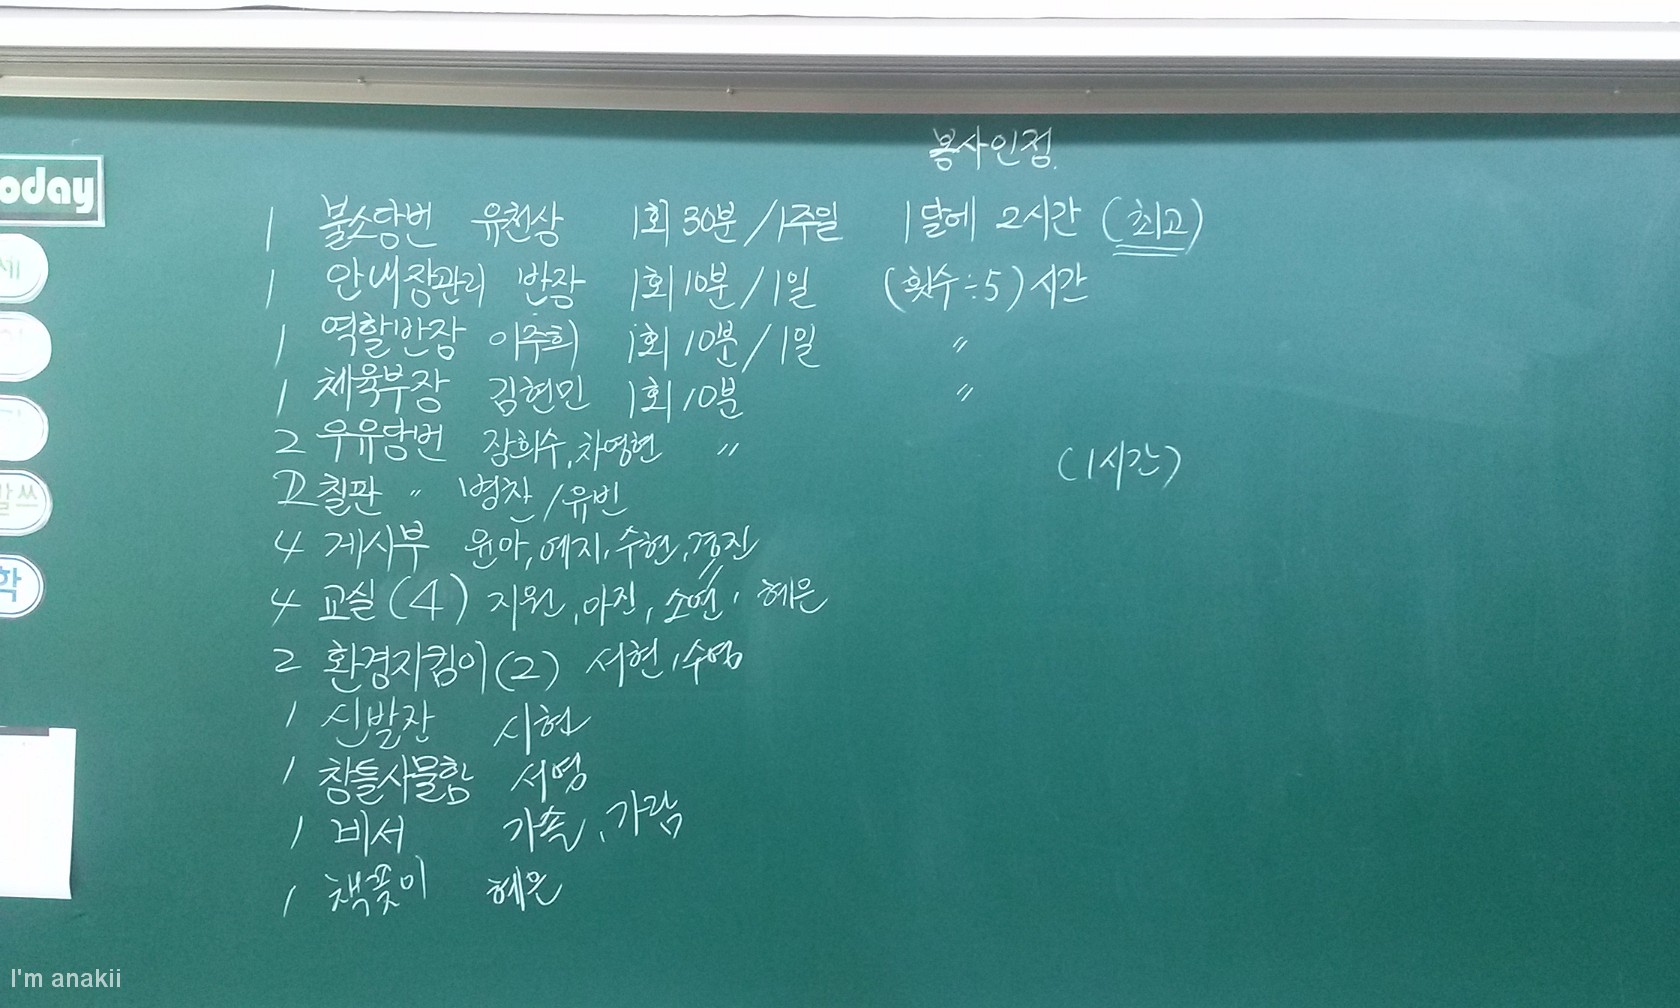 봉사인정.
1 불소당번 유천상 1회 30분/1주일 1달에 2시간 (최고)
1 안내장관리 반장 1회 10분/1일 (횟수÷5)시간
1 역할반장 이주희 1회 10분/1일 〃
1 체육부장 김현민 1회 10분 〃
2 우유당번 장희수, 차영현 〃
(1시간)
2 칠판 〃 병찬/유빈
4 게시부 윤아, 예지, 수현, 경진
4 교실(4) 지원, 아진, 소연, 혜은
2 환경지킴이(2) 서현, 수영
1 신발장 시현
1 창틀사물함 서영
1 비서 가솔, 가람
1 책꽂이 혜은
oday
세
발쓰
학
I'm anakii